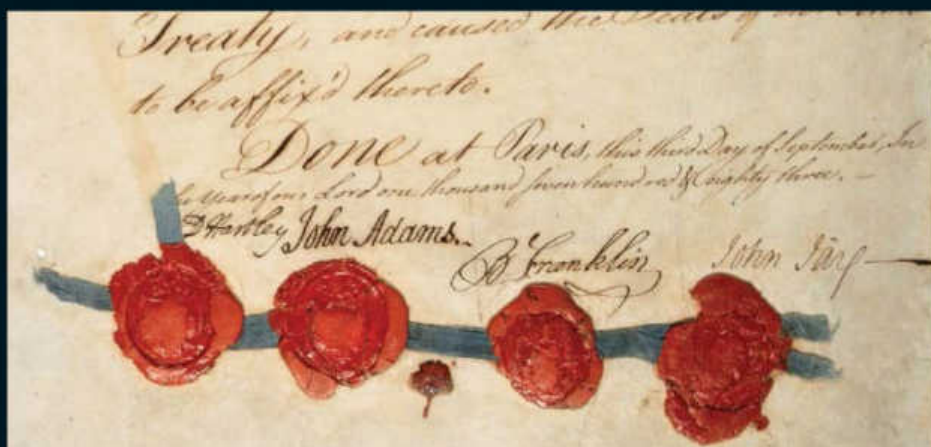 Treaty, and caused the Seals of our
to be affix'd thereto.
Done at Paris, this third Day of September, In
Year of our Lord one thousand seven hundred & eighty three. —
D Hartley John Adams. B Franklin John Jay —